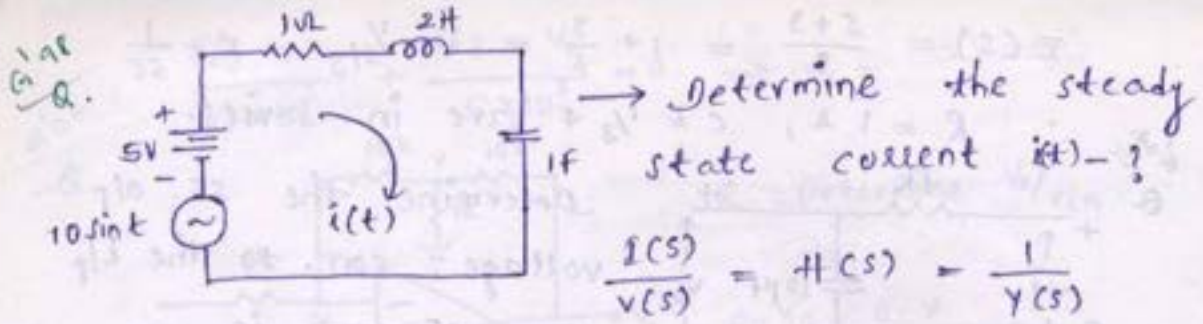 Q.
1Ω 2H
+
5V
-
10 sint
i(t)
1F
→ Determine the steady
state current i(t) - ?
I(S)/V(S) = H(S) = 1/Y(S)